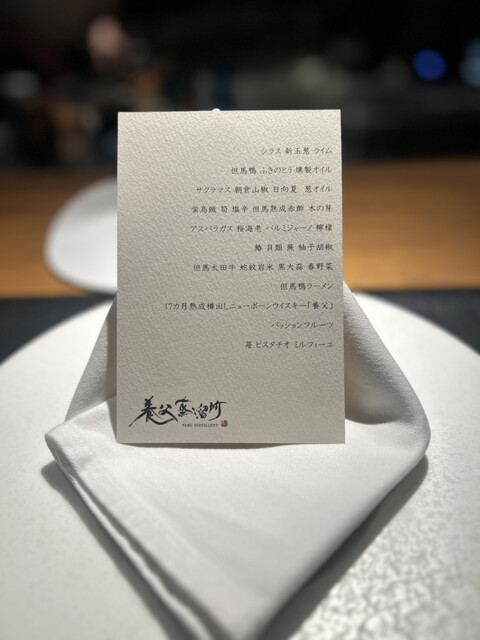 シラス 新玉葱 ライム
但馬鴨 ふきのとう 燻製オイル
サクラマス 朝倉山椒 日向夏 葱オイル
蛍烏賊 筍 塩辛 但馬熟成赤酢 木の芽
アスパラガス 桜海老 パルミジャーノ 檸檬
鰆 貝類 蕪 柚子胡椒
但馬太田牛 蛇紋岩米 黒大蒜 春野菜
但馬鴨ラーメン
17カ月熟成樽出しニューボーンウイスキー「養父」
パッションフルーツ
苺 ピスタチオ ミルフィーユ
養父蒸溜所
YABU DISTILLERY